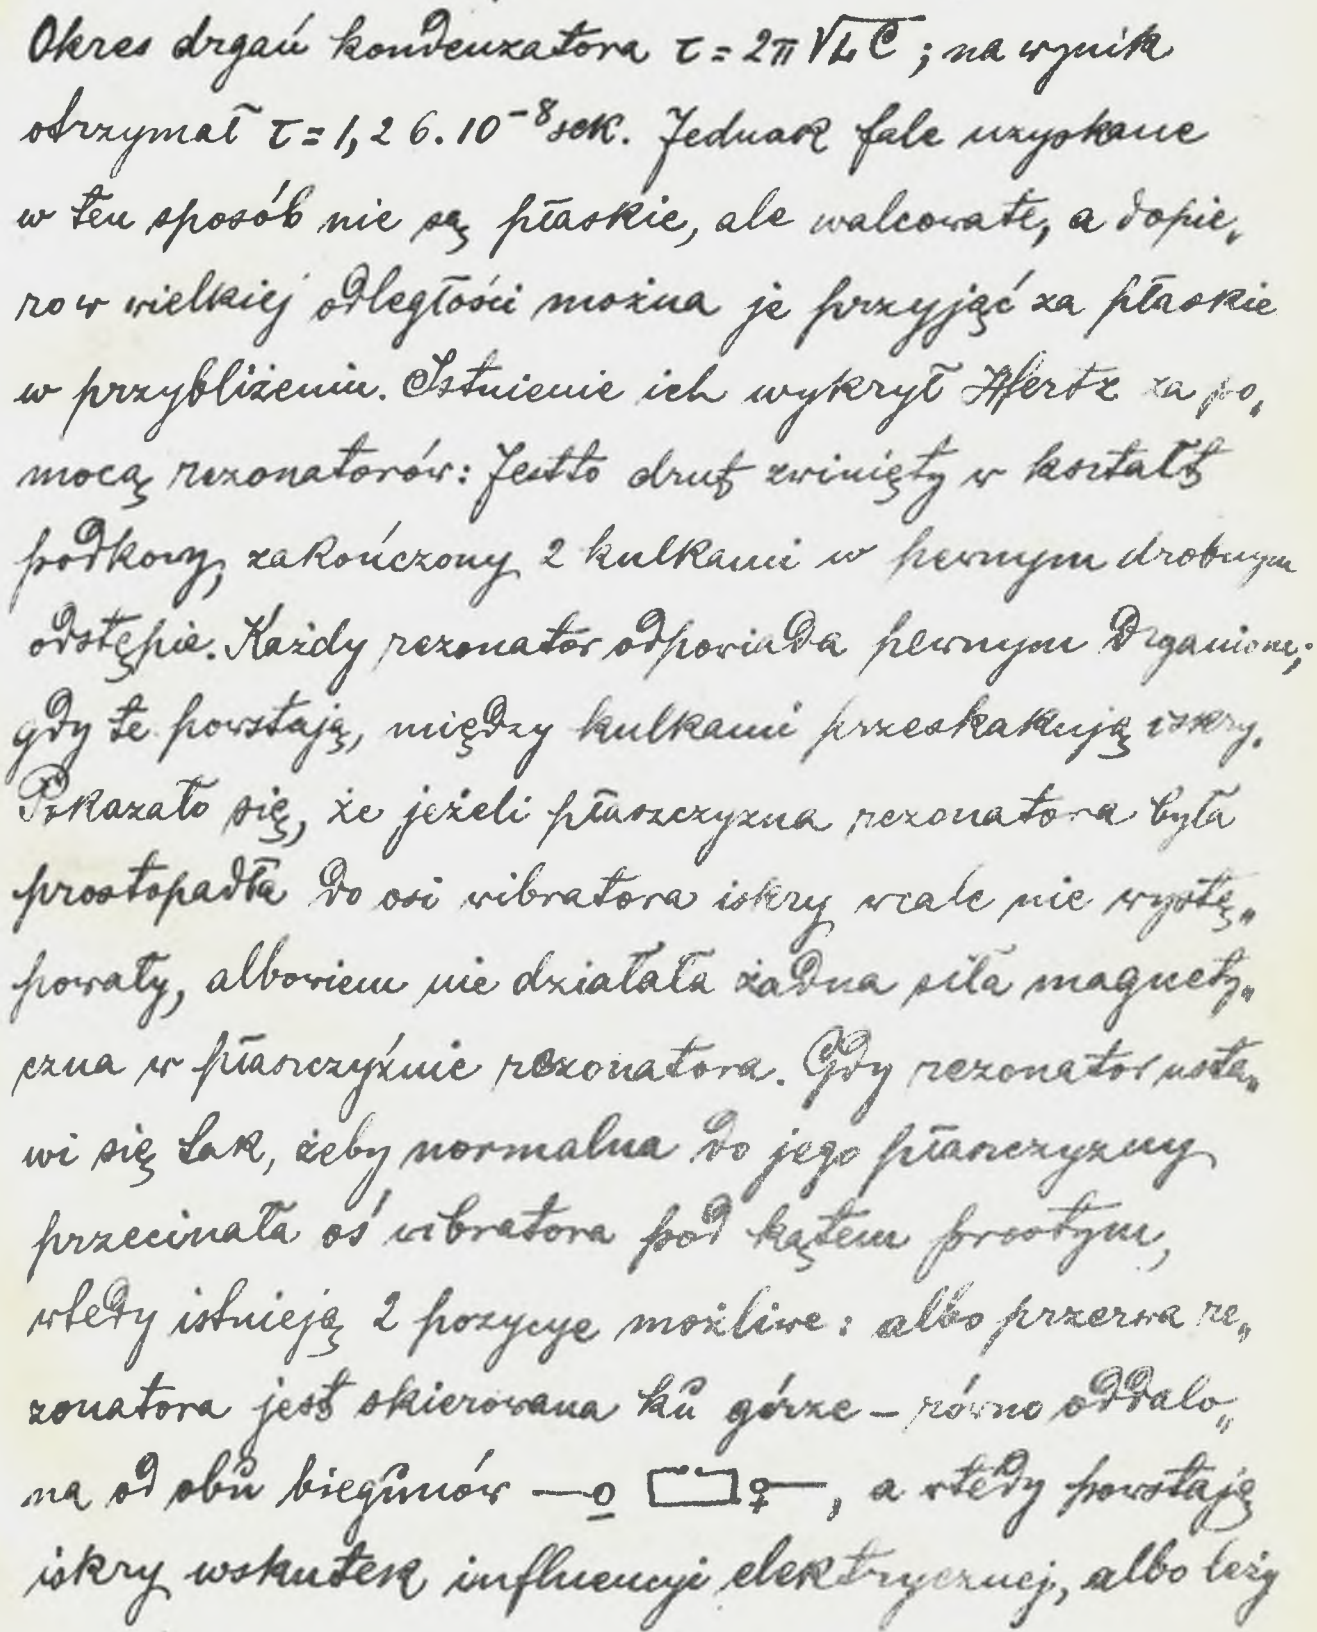 Okres drgań kondenzatora τ = 2π √LC ; na wynik
otrzymał τ = 1,26.10⁻⁸ sek. Jednak fale uzyskane
w ten sposób nie są płaskie, ale walcowate, a dopie„
ro w wielkiej odległości można je przyjąć za płaskie
w przybliżeniu. Istnienie ich wykrył Hertz za po„
mocą rezonatorów: Jestto drut zwinięty w kształt
podkowy, zakończony 2 kulkami w pewnym drobnym
odstępie. Każdy rezonator odpowiada pewnym drganiom;
gdy te powstają, między kulkami przeskakują iskry.
Pokazało się, że jeżeli płaszczyzna rezonatora była
prostopadła do osi wibratora iskry wcale nie wystę„
powały, albowiem nie działała żadna siła magnety„
czna w płaszczyźnie rezonatora. Gdy rezonator usta„
wi się tak, żeby normalna do jego płaszczyzny
przecinała oś wibratora pod kątem prostym,
wtedy istnieją 2 pozycye możliwe: albo przerwa re„
zonatora jest skierowana ku górze – równo oddalo„
na od obu biegunów , a wtedy powstają
iskry wskutek influencyi elektrycznej, albo leży